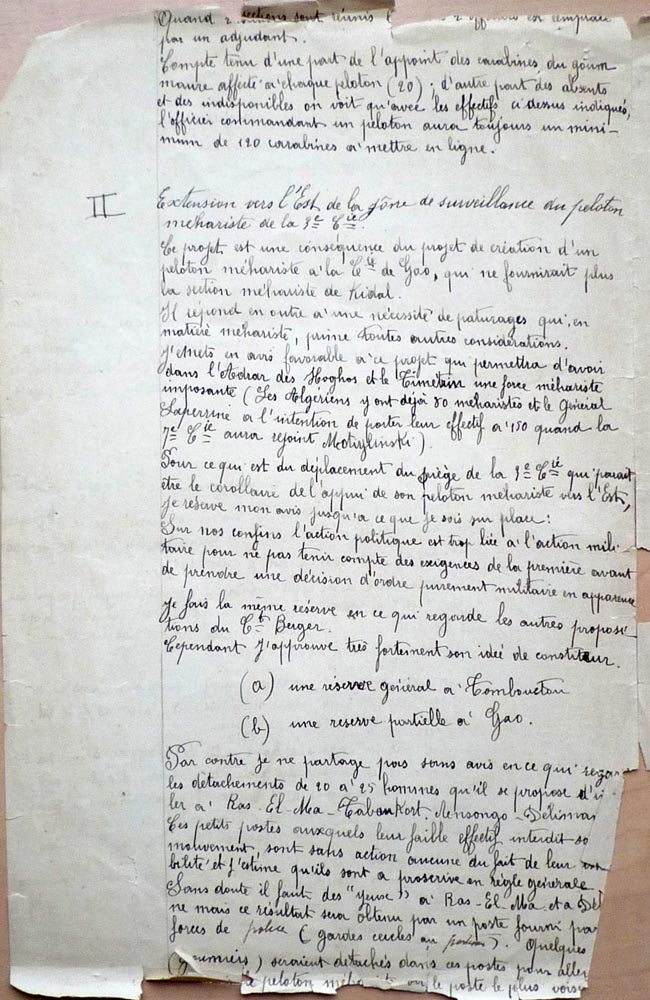 Quand 2 sections sont réunis l' 2 est remplacé
par un adjudant.
Compte tenu d'une part de l'appoint des carabines du goum
maure affecté à chaque peloton (20) ; d'autre part des absents
et des indisponibles on voit qu'avec les effectifs ci dessus indiqués,
l'officier commandant un peloton aura toujours un mini-
mum de 120 carabines à mettre en ligne.
II
Extension vers l'Est de la zône de surveillance du peloton
méhariste de la 9e Cie.
Ce projet est une conséquence du projet de création d'un
peloton méhariste à la Cie de Gao, qui ne fournirait plus
la section méhariste de Kidal.
Il répond en outre à une nécessité de paturages qui, en
matière méhariste, prime toutes autres considérations.
J'émets en avis favorable à ce projet qui permettra d'avoir
dans l'Adrar des Ifoghas et le Timétrin une force méhariste
imposante (Les Algériens y ont déjà 80 méharistes et le Général
Laperrine a l'intention de porter leur effectif à 150 quand la
7e Cie aura rejoint Motylinski).
Pour ce qui est du déplacement du siège de la 9e Cie qui parait
être le corollaire de l'appui de son peloton méhariste vers l'Est,
je réserve mon avis jusqu'à ce que je sois sur place :
Sur nos confins l'action politique est trop liée à l'action mili-
taire pour ne pas tenir compte des exigences de la première avant
de prendre une décision d'ordre purement militaire en apparence
Je fais la même réserve en ce qui regarde les autres proposi-
tions du Ct Berger.
Cependant J'approuve très fortement son idée de constituer.
(a) une réserve général à Tombouctou
(b) une reserve partielle à Gao.
Par contre je ne partage pas sans avis en ce qui regar
les détachements de 20 à 25 hommes qu'il se propose d'i
ler à Ras-El-Ma-Tabankort. Ansongo-Délimar
Ces petits postes auxquels leur faible effectif interdit so
mouvement, sont sans action aucune du fait de leur
bilité et J'estime qu'ils sont à proscrire en règle générale
Sans doute il faut des "yeux" à Ras-El-Ma et à Dél
ne mais ce résultat sera obtenu par un poste fourni par
forces de police (gardes cercles ou ). Quelques
(goumiers) seraient détachés dans ces postes pour aller
le peloton méha ou le poste le plus voisin